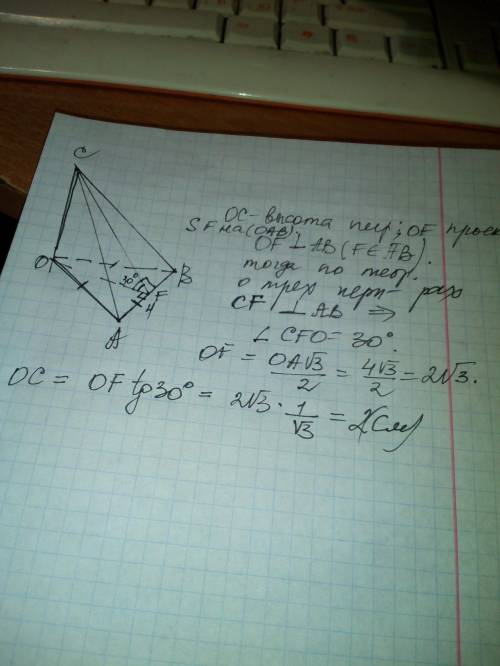 C
O
B
A
F
30°
4
OC - высота пир; OF проек
SF на (OAB),
OF ⊥ AB (F ∈ AB).
тогда по теор.
о трех перп-
CF ⊥ AB ⇒
∠ CFO = 30°.
OF = OA√3/2 = 4√3/2 = 2√3.
OC = OF tg 30° = 2√3 · 1/√3 = 2(см)